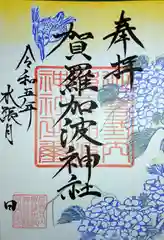 奉拝
賀羅加波神社
令和五年
水張月
日